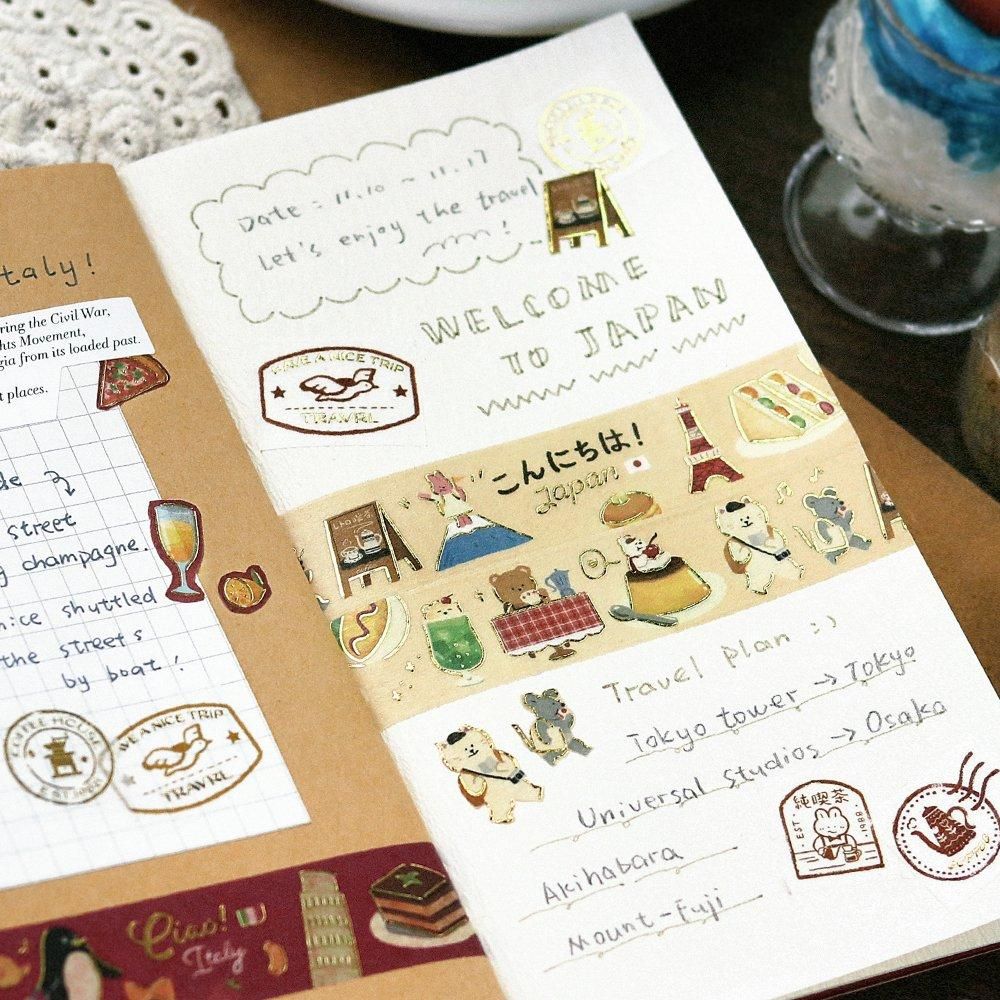 taly!
ring the Civil War,
hts Movement,
gia from its loaded past.
t places.
de
street
g champagne.
nice shuttled
the streets
by boat!
COFFEE HOUSE
HAVE A NICE TRIP
TRAVRL
Ciao!
Italy
Date : 11.10 ~ 11.17
Let's enjoy the travel
!
WELCOME
TO JAPAN
HAVE A NICE TRIP
TRAVRL
こんにちは!
Japan
Travel plan :)
Tokyo tower → Tokyo
Universal Studios → Osaka
Akihabara
Mount-Fuji
純喫茶
EST. 1988
COFFEE